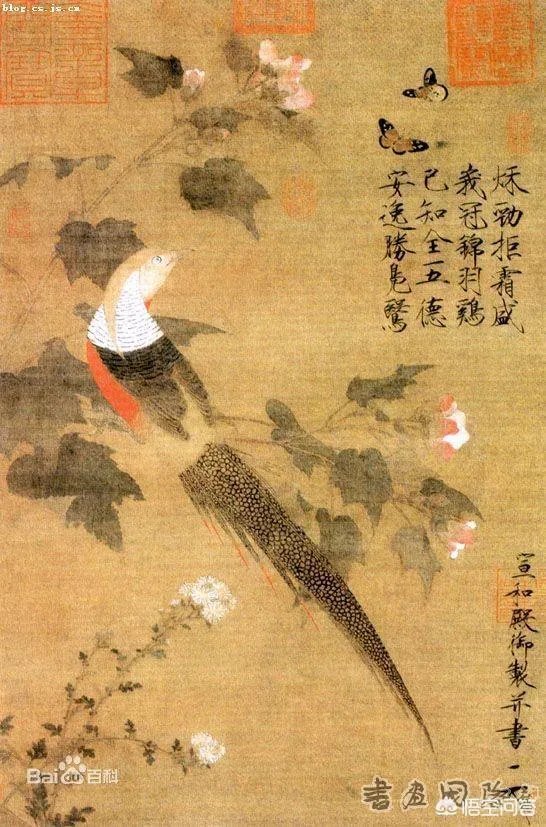 blog.cs.js.cn
秌勁拒霜盛
峩冠錦羽鷄
已知全五德
安逸勝鳬鷖
宣和殿御製并書
Bai百科
悟空问答